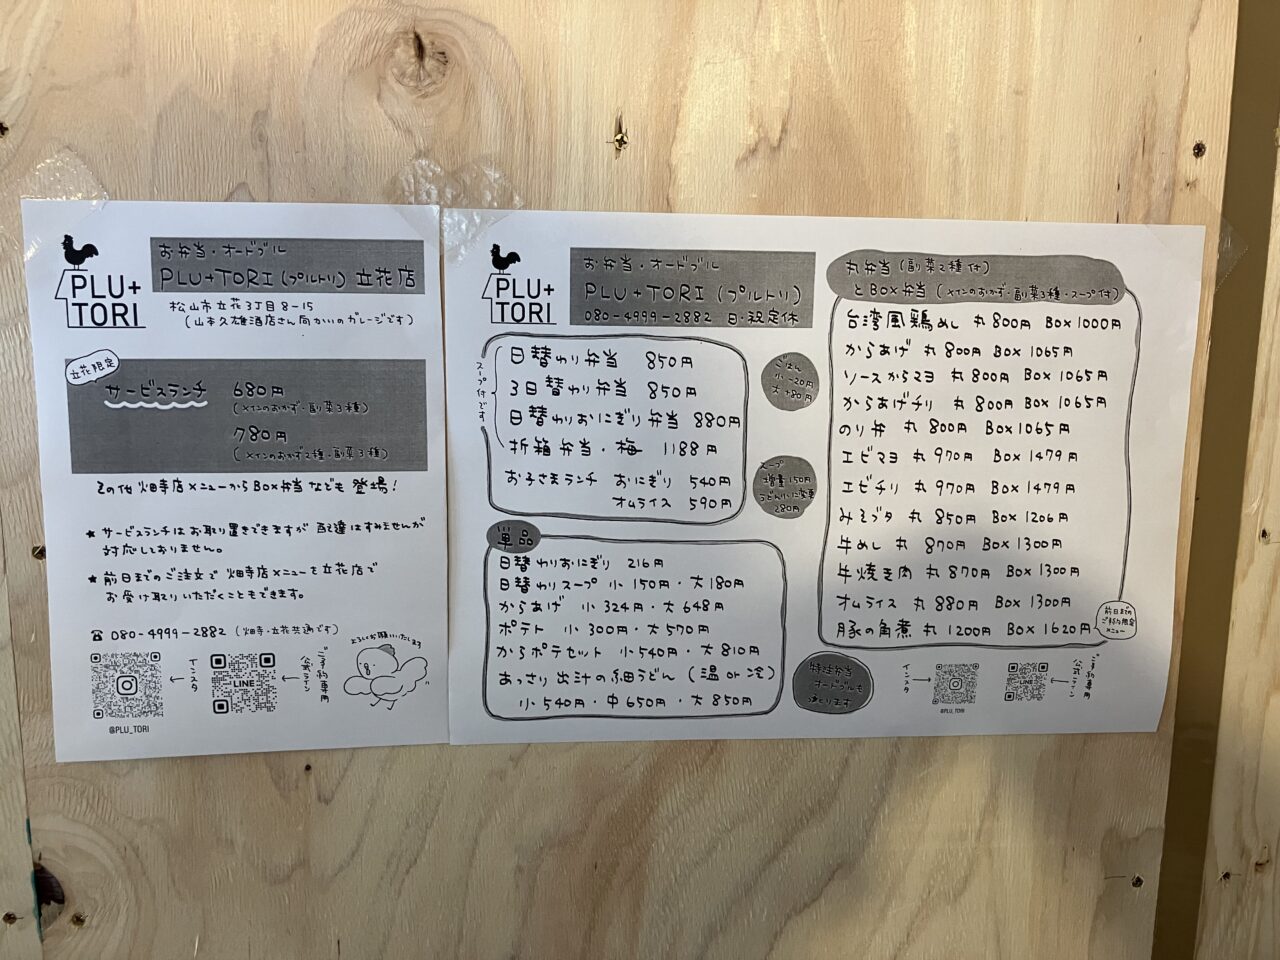 PLU+
TORI
お弁当・オードブル
PLU+TORI(プルトリ)立花店
松山市立花3丁目8-15
(山本久雄酒店さん向かいのガレージです)
立花限定
サービスランチ 680円
(メインのおかず・副菜3種)
780円
(メインのおかず2種・副菜3種)
その他 畑寺店メニューからBox弁当なども登場!
★サービスランチはお取り置きできますが 配達はすみませんが
対応しておりません。
★前日までのご注文で 畑寺店メニューを立花店で
お受け取りいただくこともできます。
☎080-4999-2882 (畑寺・立花共通です)
よろしくお願いいたします
インスタ
LINE
ご予約専用
公式ライン
@PLU_TORI
PLU+
TORI
お弁当・オードブル
PLU+TORI(プルトリ)
080-4999-2882 日・祝定休
スープ付です
日替わり弁当 850円
3日替わり弁当 850円
日替わりおにぎり弁当 880円
折箱弁当・梅 1188円
お子さまランチ おにぎり 540円
オムライス 590円
ごはん
小-20円
大+80円
スープ
増量150円
うどん小に変更
280円
単品
日替わりおにぎり 216円
日替わりスープ 小 150円・大 180円
からあげ 小 324円・大 648円
ポテト 小 300円・大 570円
からポテセット 小 540円・大 810円
あっさり出汁の細うどん (温 or 冷)
小 540円・中 650円・大 850円
丸弁当 (副菜2種付)
とBox弁当 (メインのおかず・副菜3種・スープ付)
台湾風鶏めし 丸 800円 Box 1000円
からあげ 丸 800円 Box 1065円
ソースからマヨ 丸 800円 Box 1065円
からあげチリ 丸 800円 Box 1065円
のり弁 丸 800円 Box 1065円
エビマヨ 丸 970円 Box 1479円
エビチリ 丸 970円 Box 1479円
みそブタ 丸 850円 Box 1206円
牛めし 丸 870円 Box 1300円
牛焼き肉 丸 870円 Box 1300円
オムライス 丸 880円 Box 1300円
豚の角煮 丸 1200円 Box 1620円
前日までの
ご予約限定
メニュー
特注弁当
オードブルも
承ります
インスタ
@PLU_TORI
LINE
ご予約専用
公式ライン